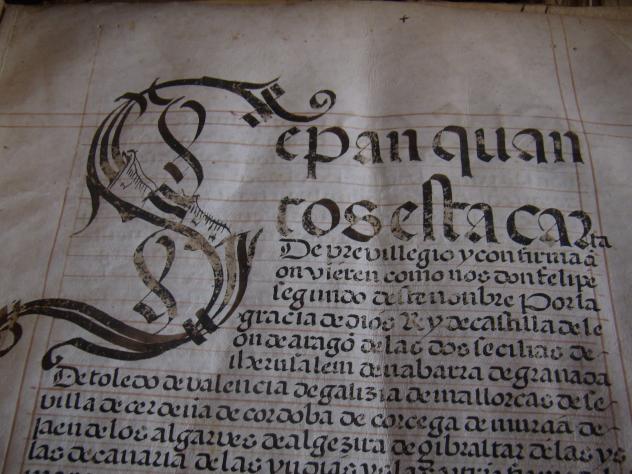 Sepan quan
tos esta car
ta
De previllegio y confirmaçi
on vieren como nos don felipe
segundo deste nonbre Por la
gracia de dios Rey de castilla de le
on de aragõ de las dos secilias de
iherusalem de nabarra de granada
De toledo de valencia de galizia de mallorcas de se
villa de cerdeña de cordoba de corcega de murcia de
jaen de los algarves de algezira de gibraltar de las ys
las de canaria de las yndias yslas